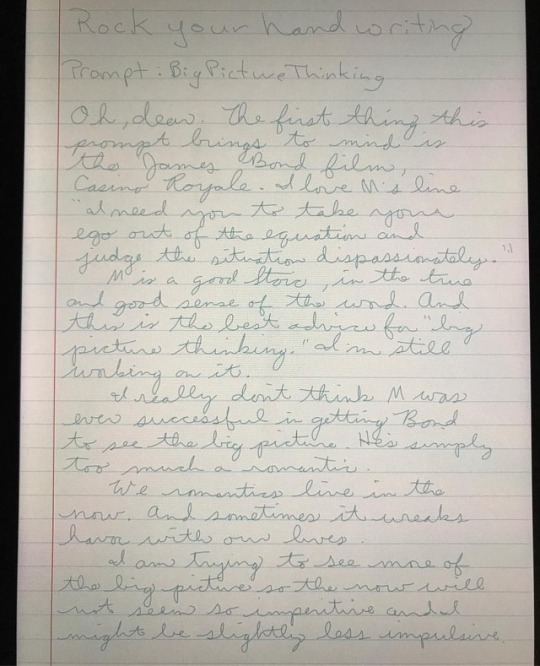 Rock your handwriting
Prompt: Big Picture Thinking
Oh, dear. The first thing this
prompt brings to mind is
the James Bond film,
Casino Royale. I love M's line
"I need you to take your
ego out of the equation and
judge the situation dispassionately."
M is a good Stoic, in the true
and good sense of the word. And
this is the best advice for "big
picture thinking." I'm still
working on it.
I really don't think M was
ever successful in getting Bond
to see the big picture. He's simply
too much a romantic.
We romantics live in the
now. And sometimes it wreaks
havoc with our lives.
I am trying to see more of
the big picture so the now will
not seem so imperitive and I
might be slightly less impulsive.